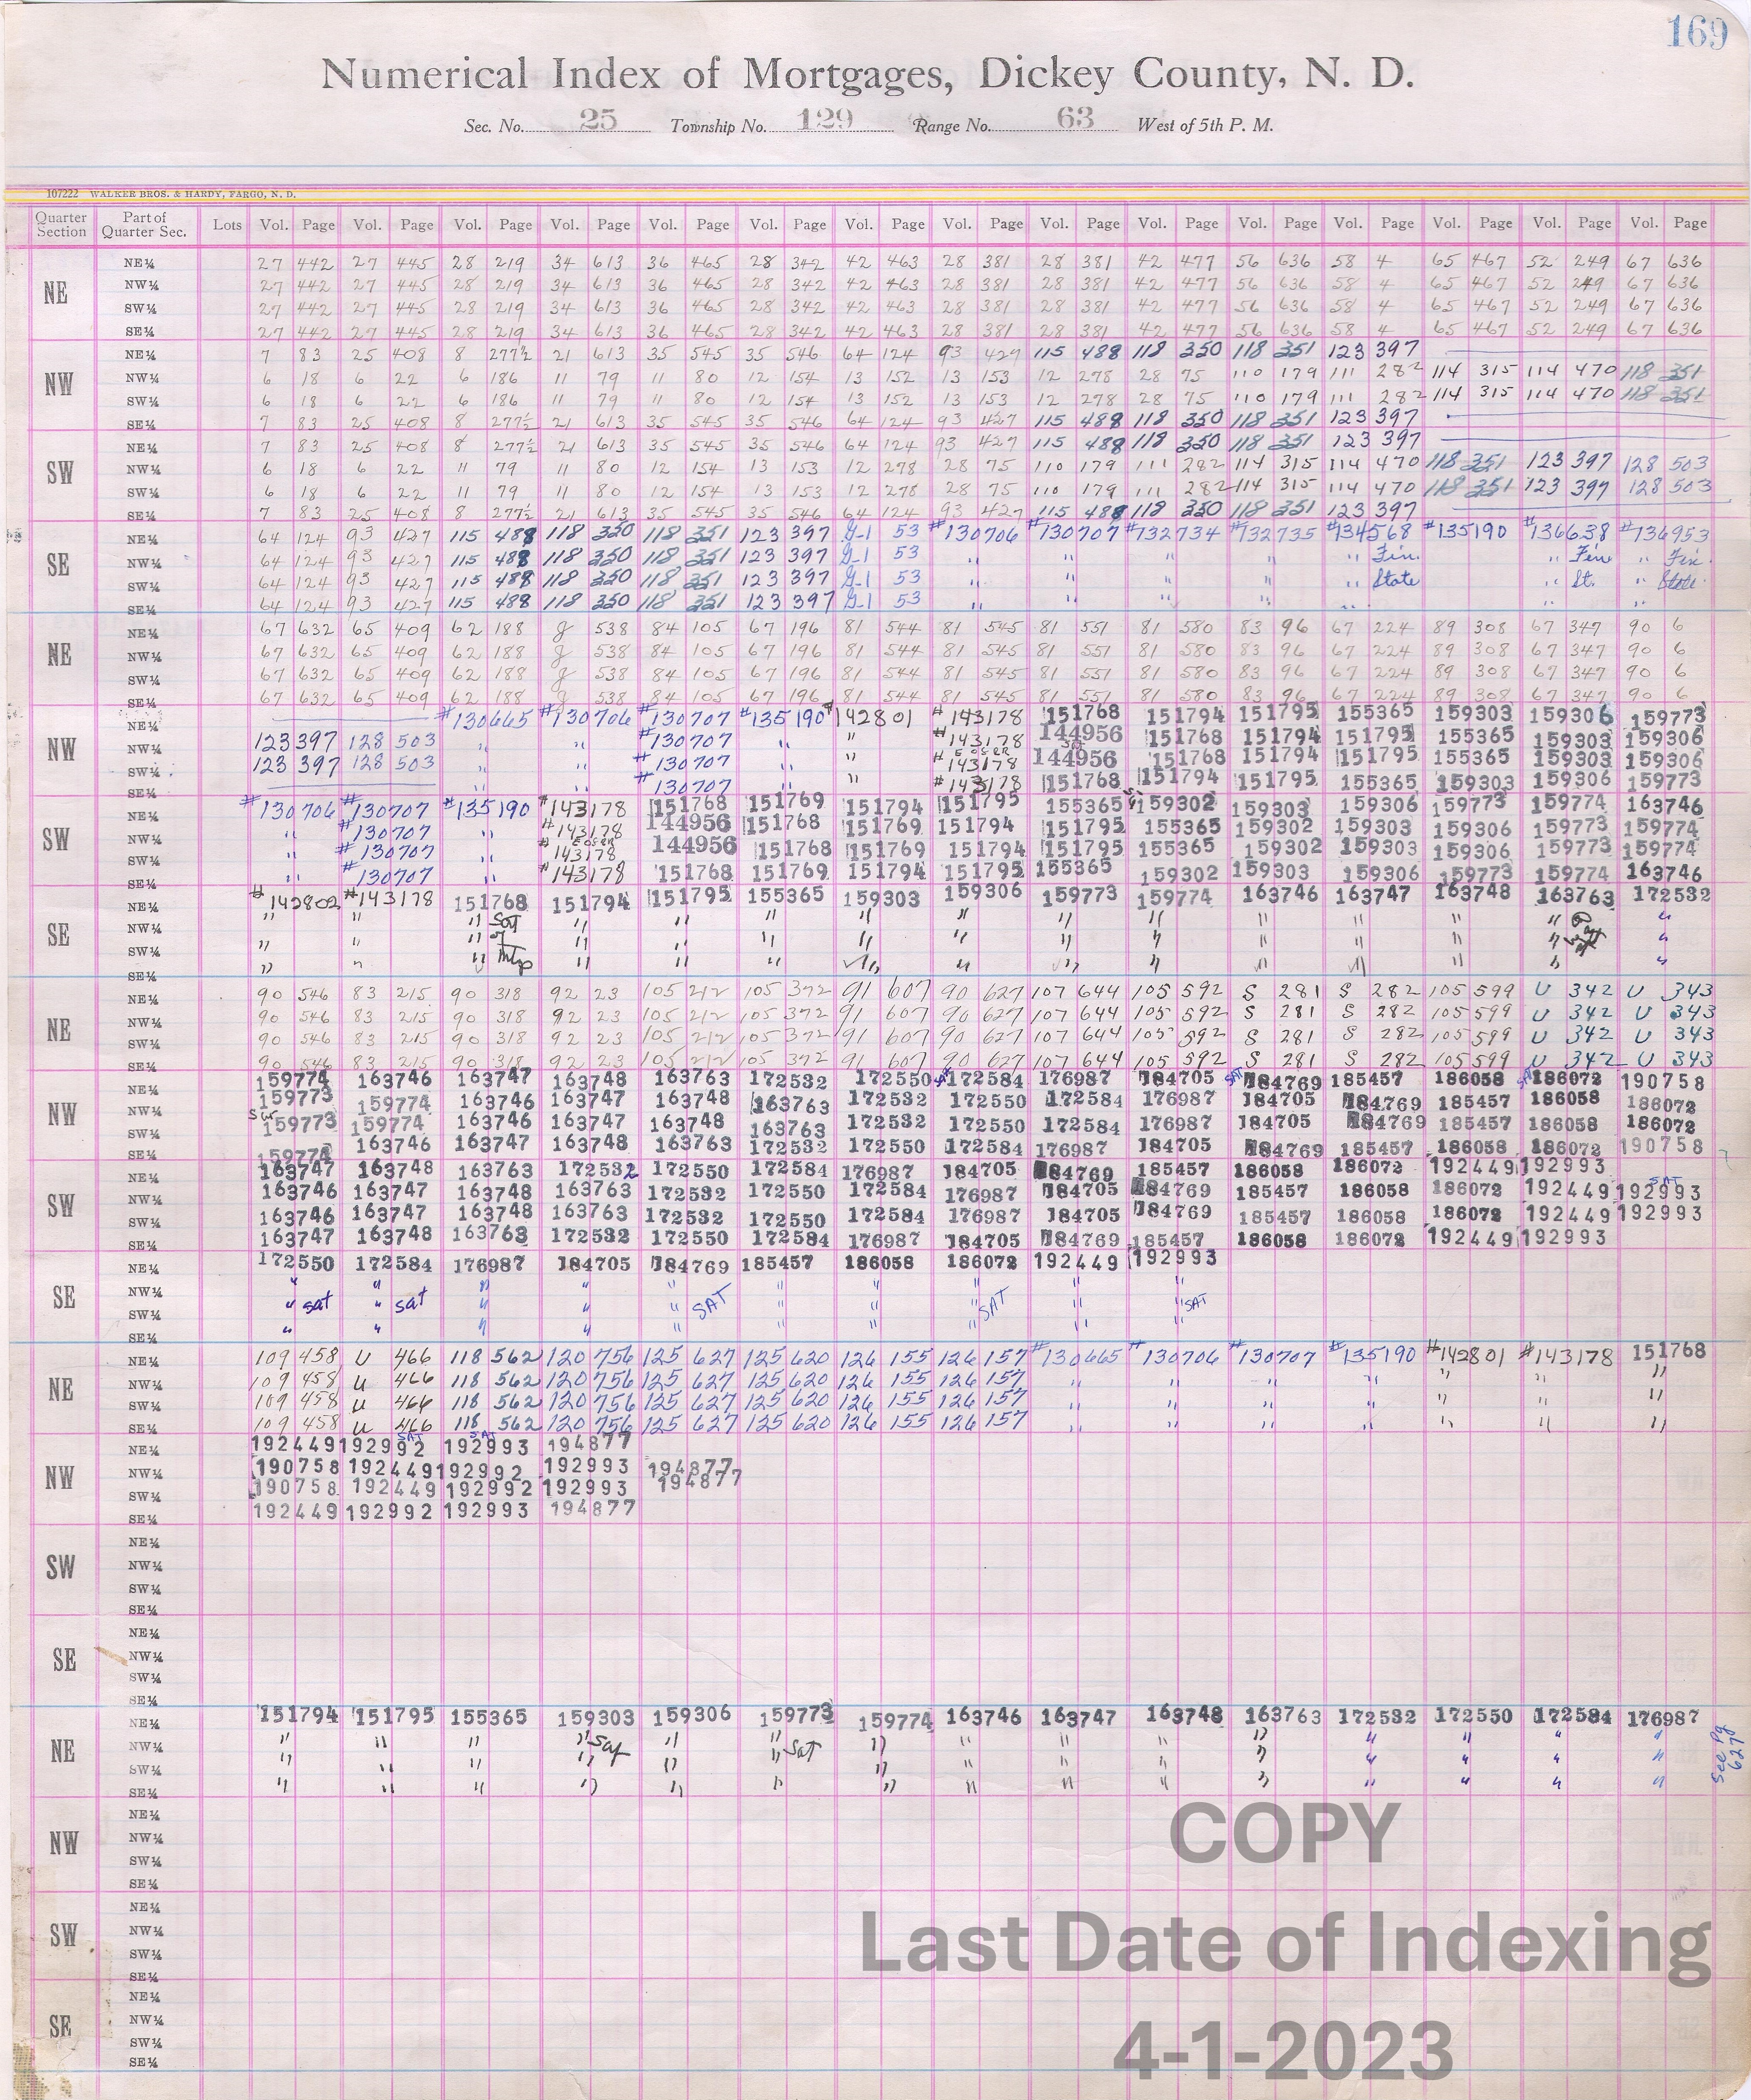 169
Numerical Index of Mortgages, Dickey County, N. D.
Sec. No. 25 Township No. 129 Range No. 63 West of 5th P. M.
107222 WALKER BROS. & HARDY, FARGO, N. D.
Quarter Section Part of Quarter Sec. Lots Vol. Page Vol. Page Vol. Page Vol. Page Vol. Page Vol. Page Vol. Page Vol. Page Vol. Page Vol. Page Vol. Page Vol. Page Vol. Page Vol. Page Vol. Page
NE
NE¼ 27 442 27 445 28 219 34 613 36 465 28 342 42 463 28 381 28 381 42 477 56 636 58 4 65 467 52 249 67 636
NW¼ 27 442 27 445 28 219 34 613 36 465 28 342 42 463 28 381 28 381 42 477 56 636 58 4 65 467 52 249 67 636
SW¼ 27 442 27 445 28 219 34 613 36 465 28 342 42 463 28 381 28 381 42 477 56 636 58 4 65 467 52 249 67 636
SE¼ 27 442 27 445 28 219 34 613 36 465 28 342 42 463 28 381 28 381 42 477 56 636 58 4 65 467 52 249 67 636
NW
NE¼ 7 83 25 408 8 277½ 21 613 35 545 35 546 64 124 93 427 115 488 118 350 118 351 123 397
NW¼ 6 18 6 22 6 186 11 79 11 80 12 154 13 152 13 153 12 278 28 75 110 179 111 282 114 315 114 470 118 351
SW¼ 6 18 6 22 6 186 11 79 11 80 12 154 13 152 13 153 12 278 28 75 110 179 111 282 114 315 114 470 118 351
SE¼ 7 83 25 408 8 277½ 21 613 35 545 35 546 64 124 93 427 115 488 118 350 118 351 123 397
SW
NE¼ 7 83 25 408 8 277½ 21 613 35 545 35 546 64 124 93 427 115 488 118 350 118 351 123 397
NW¼ 6 18 6 22 11 79 11 80 12 154 13 153 12 278 28 75 110 179 111 282 114 315 114 470 118 351 123 397 128 503
SW¼ 6 18 6 22 11 79 11 80 12 154 13 153 12 278 28 75 110 179 111 282 114 315 114 470 118 351 123 397 128 503
SE¼ 7 83 25 408 8 277½ 21 613 35 545 35 546 64 124 93 427 115 488 118 350 118 351 123 397
SE
NE¼ 64 124 93 427 115 488 118 350 118 351 123 397 G-1 53 #130706 #130707 #132734 #132735 #134568 #135190 #136638 #136953
NW¼ 64 124 93 427 115 488 118 350 118 351 123 397 G-1 53 " " " " " Fin. " Fin " Fin.
SW¼ 64 124 93 427 115 488 118 350 118 351 123 397 G-1 53 " " " " " State " St. " State
SE¼ 64 124 93 427 115 488 118 350 118 351 123 397 G-1 53 " " " " " " "
NE
NE¼ 67 632 65 409 62 188 g 538 84 105 67 196 81 544 81 545 81 551 81 580 83 96 67 224 89 308 67 347 90 6
NW¼ 67 632 65 409 62 188 g 538 84 105 67 196 81 544 81 545 81 551 81 580 83 96 67 224 89 308 67 347 90 6
SW¼ 67 632 65 409 62 188 g 538 84 105 67 196 81 544 81 545 81 551 81 580 83 96 67 224 89 308 67 347 90 6
SE¼ 67 632 65 409 62 188 g 538 84 105 67 196 81 544 81 545 81 551 81 580 83 96 67 224 89 308 67 347 90 6
NW
NE¼ #130665 #130706 #130707 #135190 #142801 #143178 151768 151794 151795 155365 159303 159306 159773
NW¼ 123 397 128 503 " " #130707 " " #143178 144956 151768 151794 151795 155365 159303 159306
SW¼ 123 397 128 503 " " #130707 " " #143178 144956 151768 151794 151795 155365 159303 159306
SE¼ " " #130707 " " #143178 151768 151794 151795 155365 159303 159306 159773
SW
NE¼ #130706 #130707 #135190 #143178 151768 151769 151794 151795 155365 159302 159303 159306 159773 159774 163746
NW¼ " #130707 " #143178 144956 151768 151769 151794 151795 155365 159302 159303 159306 159773 159774
SW¼ " #130707 " #143178 144956 151768 151769 151794 151795 155365 159302 159303 159306 159773 159774
SE¼ " #130707 " #143178 151768 151769 151794 151795 155365 159302 159303 159306 159773 159774 163746
SE
NE¼ #142802 #143178 151768 151794 151795 155365 159303 159306 159773 159774 163746 163747 163748 163763 172532
NW¼ " " " Sat " " " " " " " " " " " "
SW¼ " " " of " " " " " " " " " " " "
SE¼ " " " Mtg " " " " " " " " " " " "
NE
NE¼ 90 546 83 215 90 318 92 23 105 212 105 372 91 607 90 627 107 644 105 592 S 281 S 282 105 599 U 342 U 343
NW¼ 90 546 83 215 90 318 92 23 105 212 105 372 91 607 90 627 107 644 105 592 S 281 S 282 105 599 U 342 U 343
SW¼ 90 546 83 215 90 318 92 23 105 212 105 372 91 607 90 627 107 644 105 592 S 281 S 282 105 599 U 342 U 343
SE¼ 90 546 83 215 90 318 92 23 105 212 105 372 91 607 90 627 107 644 105 592 S 281 S 282 105 599 U 342 U 343
NW
NE¼ 159774 163746 163747 163748 163763 172532 172550 SAT 172584 176987 184705 SAT 184769 185457 186058 SAT 186072 190758
NW¼ 159773 159774 163746 163747 163748 163763 172532 172550 172584 176987 184705 184769 185457 186058 186072
SW¼ 159773 159774 163746 163747 163748 163763 172532 172550 172584 176987 184705 184769 185457 186058 186072
SE¼ 159774 163746 163747 163748 163763 172532 172550 172584 176987 184705 184769 185457 186058 186072 190758
SW
NE¼ 163747 163748 163763 172532 172550 172584 176987 184705 184769 185457 186058 186072 192449 192993
NW¼ 163746 163747 163748 163763 172532 172550 172584 176987 184705 184769 185457 186058 186072 192449 SAT 192993
SW¼ 163746 163747 163748 163763 172532 172550 172584 176987 184705 184769 185457 186058 186072 192449 192993
SE¼ 163747 163748 163763 172532 172550 172584 176987 184705 184769 185457 186058 186072 192449 192993
SE
NE¼ 172550 172584 176987 184705 184769 185457 186058 186072 192449 192993
NW¼ " " " " " " " " " "
SW¼ " sat " sat " " " SAT " " " SAT " " SAT
SE¼ " " " " " " " " " "
NE
NE¼ 109 458 U 466 118 562 120 756 125 627 125 620 126 155 126 157 #130665 #130706 #130707 #135190 #142801 #143178 151768
NW¼ 109 458 U 466 118 562 120 756 125 627 125 620 126 155 126 157 " " " " " " "
SW¼ 109 458 U 466 118 562 120 756 125 627 125 620 126 155 126 157 " " " " " " "
SE¼ 109 458 U 466 118 562 120 756 125 627 125 620 126 155 126 157 " " " " " " "
NW
NE¼ 192449 192992 SAT 192993 SAT 194877
NW¼ 190758 192449 192992 192993 194877
SW¼ 190758 192449 192992 192993 194877
SE¼ 192449 192992 192993 194877
SW
NE¼
NW¼
SW¼
SE¼
SE
NE¼
NW¼
SW¼
SE¼
NE
NE¼ 151794 151795 155365 159303 159306 159773 159774 163746 163747 163748 163763 172532 172550 172584 176987
NW¼ " " " " Sat " " Sat " " " " " " " " "
SW¼ " " " " " " " " " " " " " " "
SE¼ " " " " " " " " " " " " " " "
See Pg 627
NW
NE¼
NW¼
SW¼
SE¼
SW
NE¼
NW¼
SW¼
SE¼
SE
NE¼
NW¼
SW¼
SE¼
COPY
Last Date of Indexing
4-1-2023